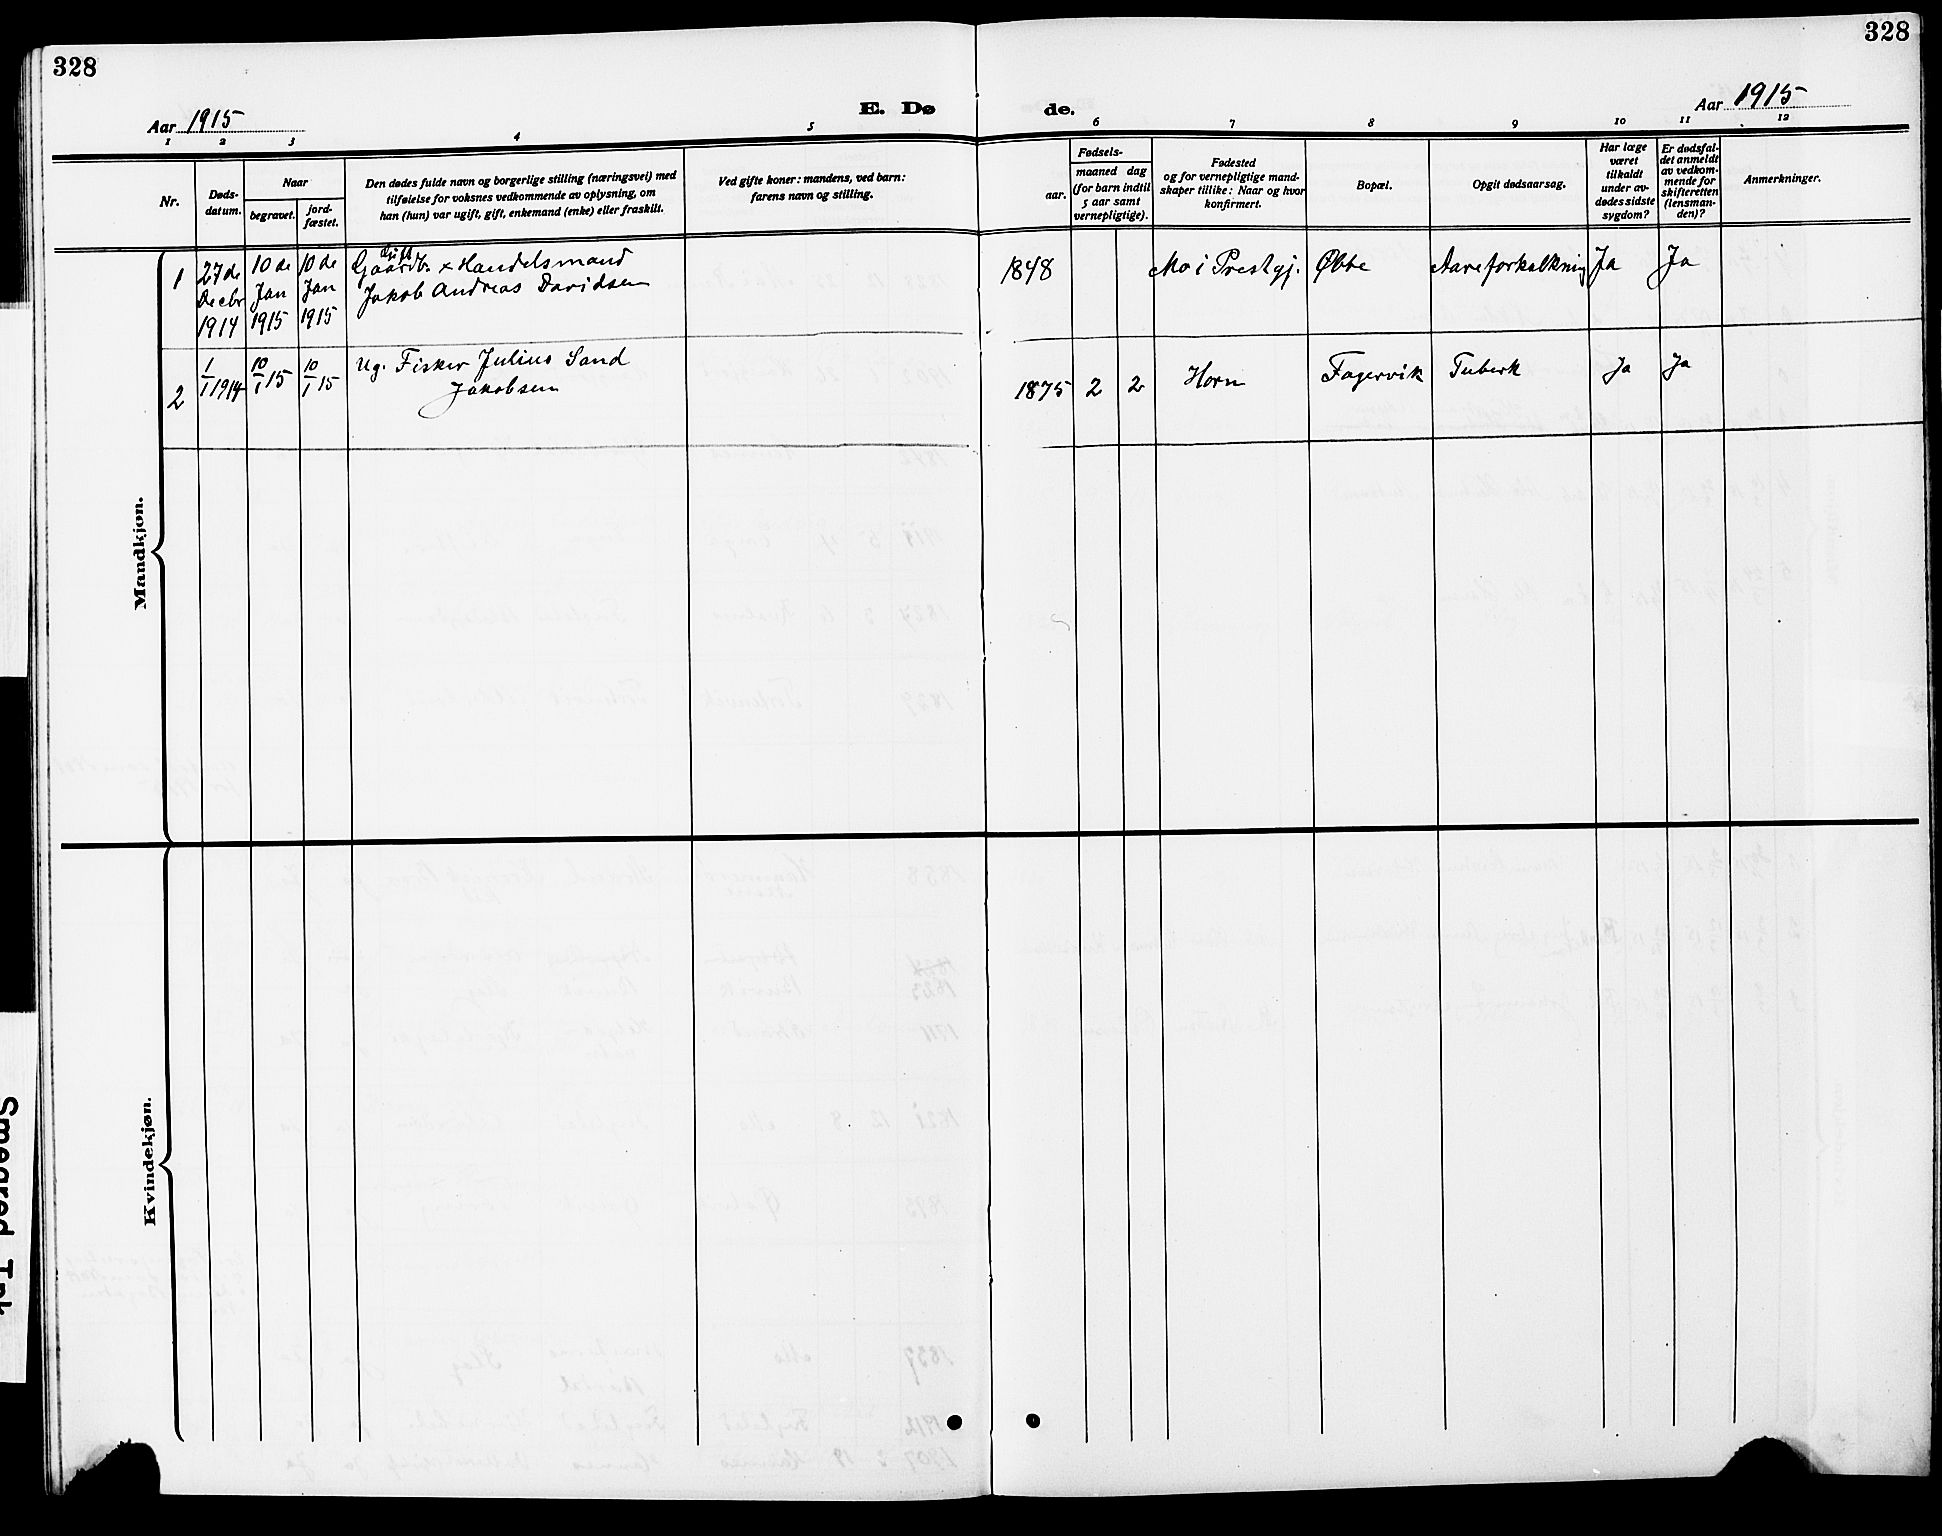 328
328
Aar 1915
E. Dø
de.
Aar 1915
1 2 3 4 5 6 7 8 9 10 11 12
Nr.
Døds-
datum.
Naar
begravet.
jord-
fæstet.
Den dødes fulde navn og borgerlige stilling (næringsvei) med
tilføielse for voksnes vedkommende av oplysning, om
han (hun) var ugift, gift, enkemand (enke) eller fraskilt.
Ved gifte koner: mandens, ved barn:
farens navn og stilling.
Fødsels-
aar.
maaned dag
(for barn indtil
5 aar samt
vernepligtige).
Fødested
og for vernepligtige mand-
skaper tillike: Naar og hvor
konfirmert.
Bopæl.
Opgit dødsaarsag.
Har læge
været
tilkaldt
under av-
dødes sidste
sygdom?
Er dødsfal-
det anmeldt
av vedkom-
mende for
skifteretten
(lensman-
den)?
Anmerkninger.
Mandkjøn.
1
27de
Decbr
1914
10 de
Jan
1915
10 de
Jan
1915
gift
Gaardb. x Handelsmand
Jakob Andreas Davidsen
1848
Mo i Prestgj.
Økte
Aareforkalkning
Ja
Ja
2
1/1 1914
10/1 15
10/1 15
Ug. Fisker Julius Sand
Jakobsen
1875
2
2
Horn
Fagervik
Tuberk
Ja
Ja
Kvindekjøn.
Smegred Ink